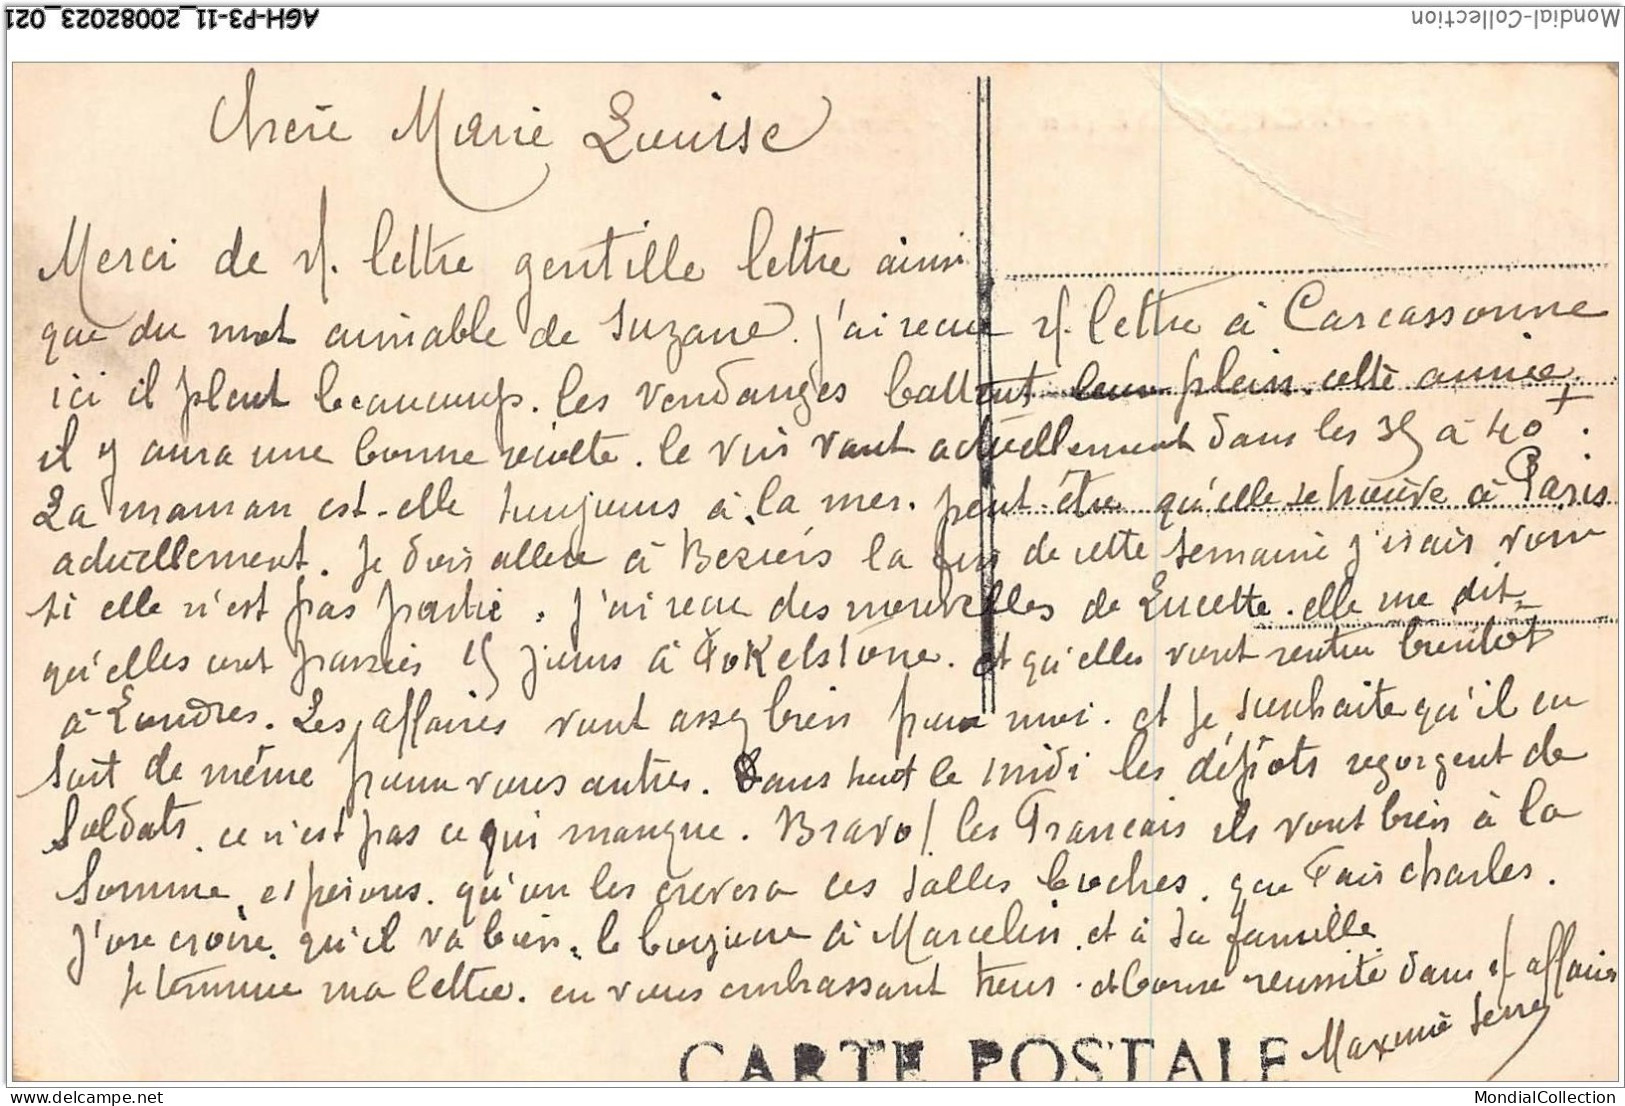 AGH-P3-11_20082023_021
Mondial-Collection
Chère Marie Louise
Merci de v/. lettre gentille lettre ainsi
que du mot aimable de Suzane. j'ai recue v/. lettre à Carcassonne
ici il pleut beaucoup. les vendanges battent leur plein. cette année
il y aura une bonne récolte. le vin vaut actuellement dans les 35 à 40 +.
La maman est-elle toujours à la mer. peut-être qu'elle se trouve à Paris
actuellement. Je dois aller à Beziers la fin de cette semaine j'irais voir
si elle n'est pas partie. J'ai recue des nouvelles de Lucette. elle me dit
qu'elles ont passées 15 jours à Fokelstone. et qu'elles vont rentrer bientôt
à Londres. Les affaires vont assez bien pour moi. et je souhaite qu'il en
soit de même pour vous autres. Dans tout le midi les dépôts regorgent de
Soldats. ce n'est pas ce qui manque. Bravo! les Francais ils vont bien à la
Somme, espérons. qu'on les crevera ces salles boches. que Fais Charles.
J'ose croire. qu'il va bien. le bonjour à Marcelin. et à sa famille
Je termine ma lettre. en vous embrassant tous. et bonne réussite dans v/ affaires
Maxime Serre
CARTE POSTALE
MondialCollection